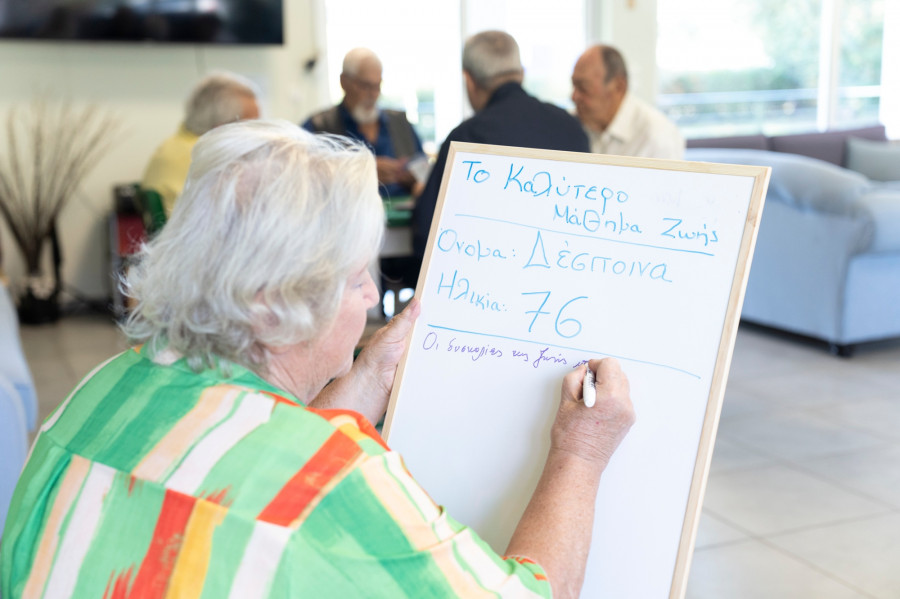 Το Καλύτερο
Μάθημα Ζωής
Ονομα: Δέσποινα
Ηλικία: 76
Οι δυσκολίες της ζωής